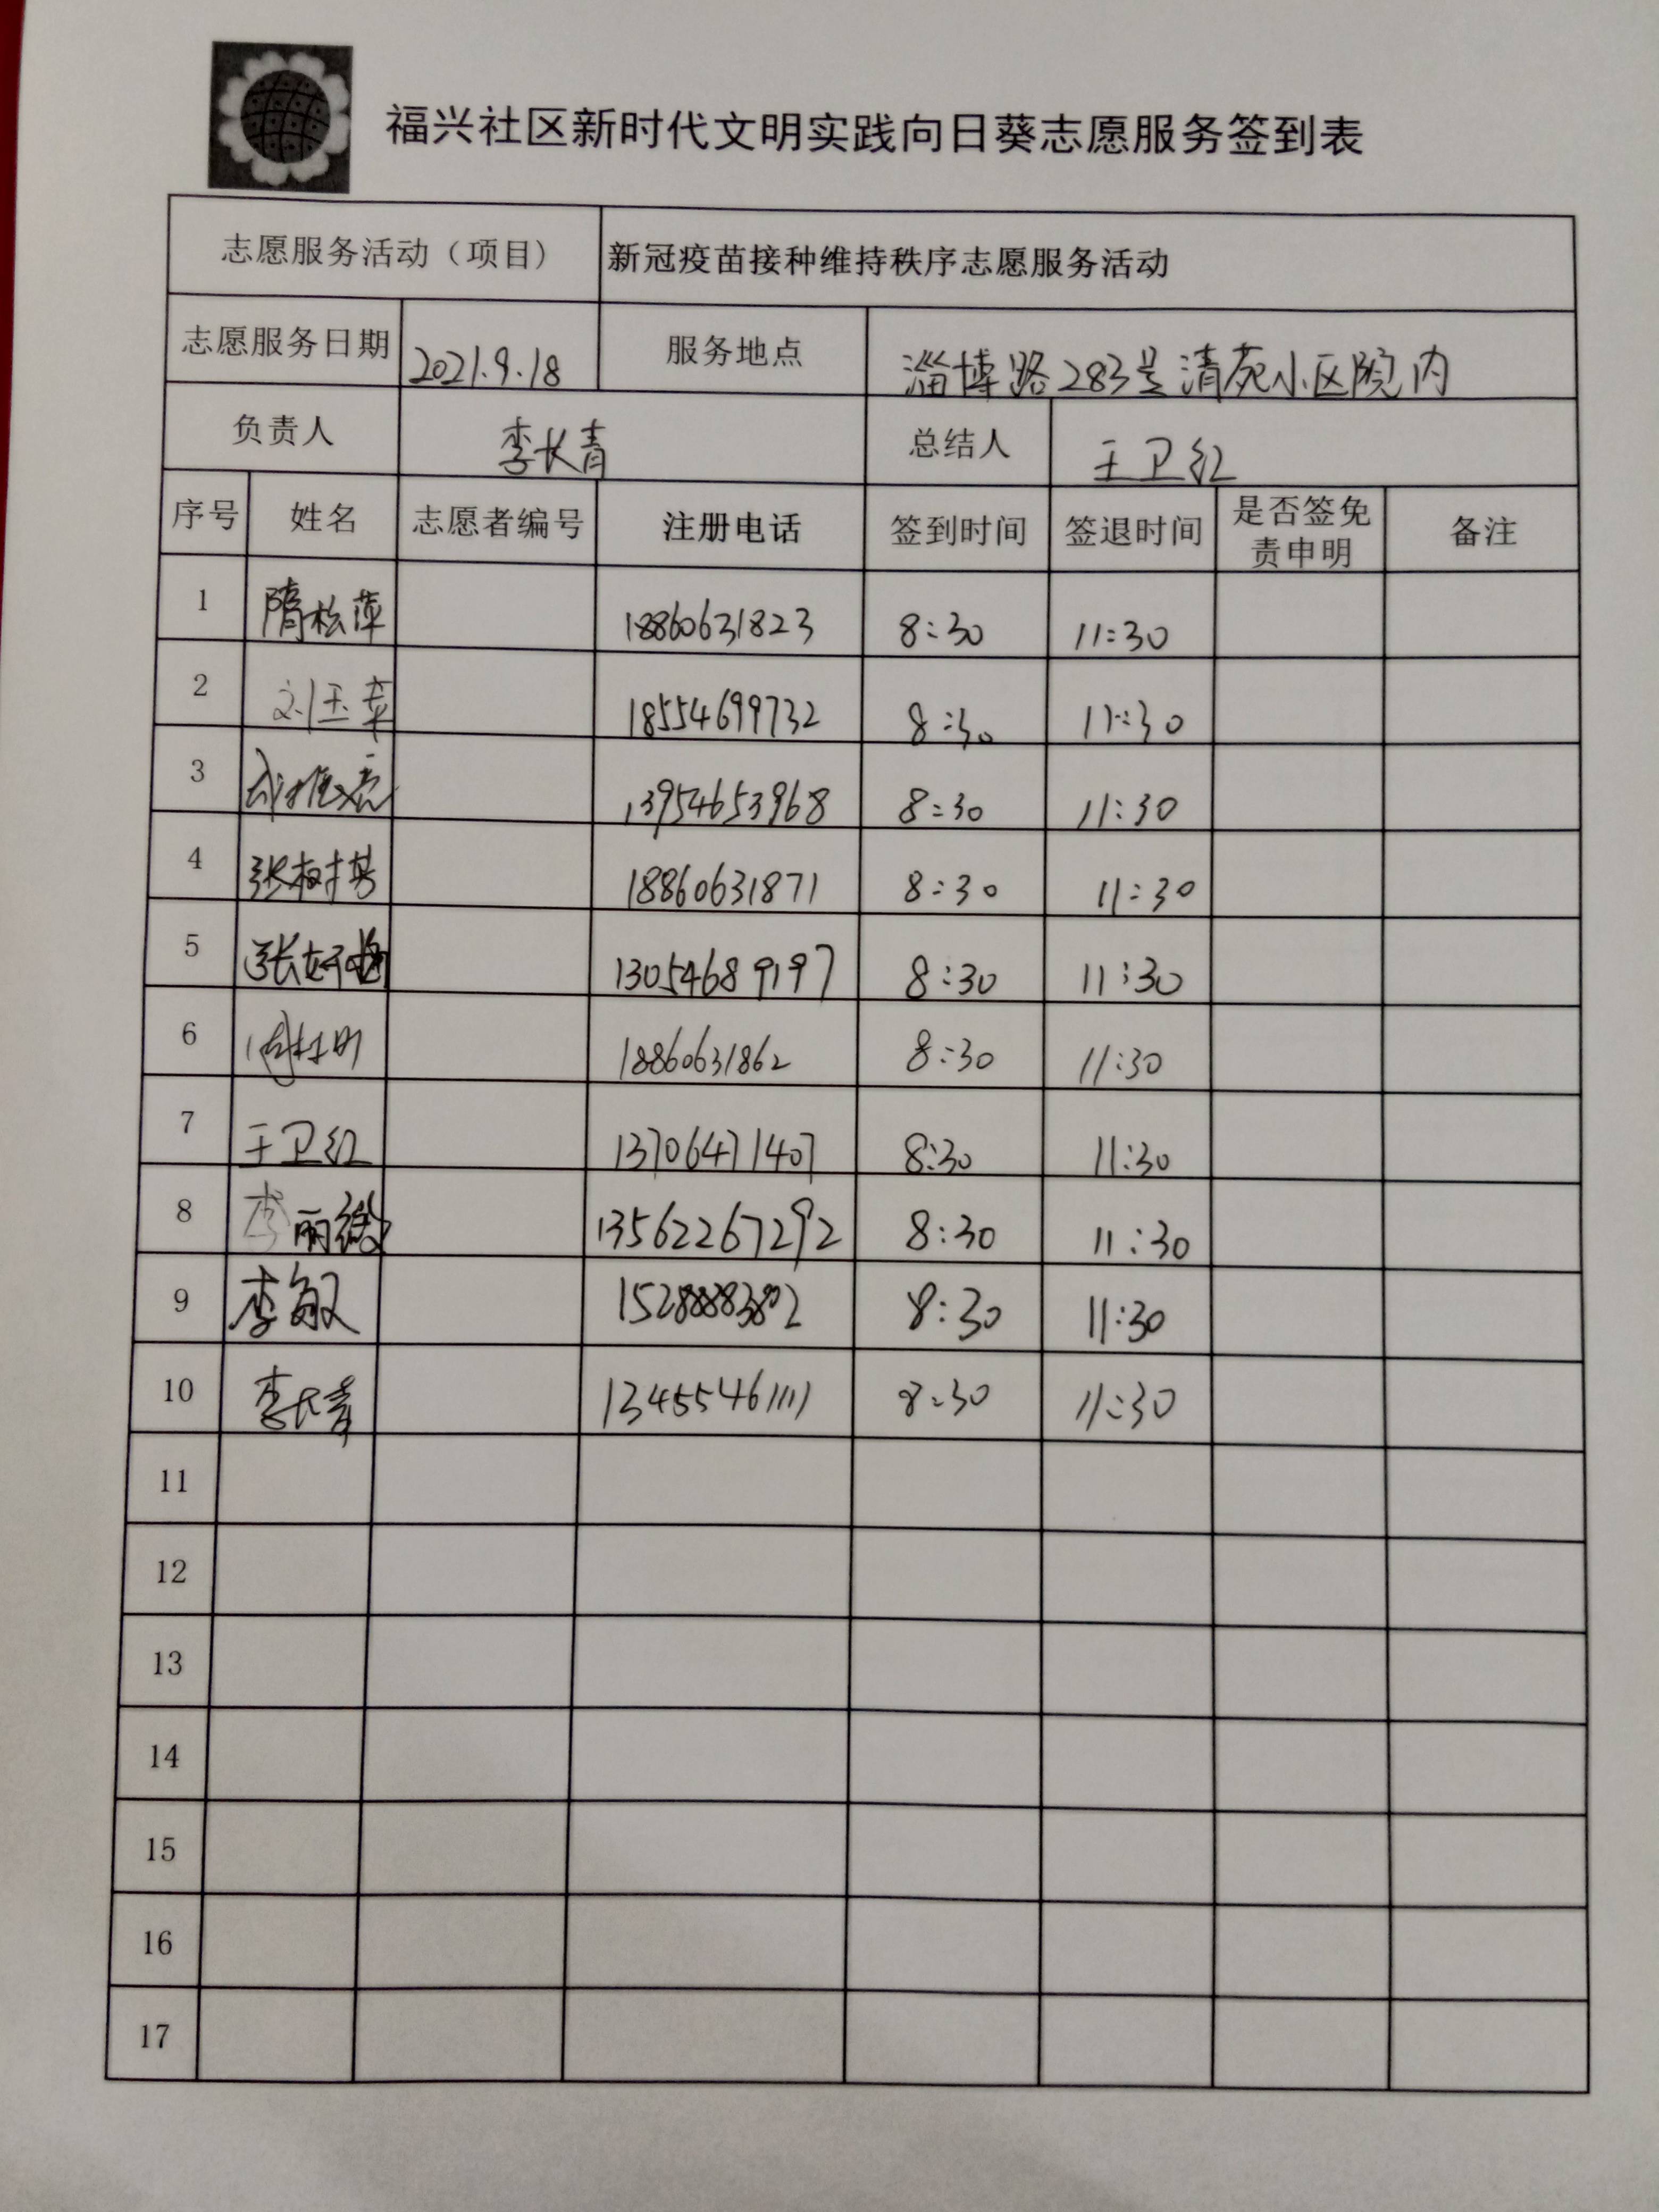 福兴社区新时代文明实践向日葵志愿服务签到表
志愿服务活动（项目） 新冠疫苗接种维持秩序志愿服务活动
志愿服务日期 2021.9.18 服务地点 淄博路283号清苑小区院内
负责人 李长青 总结人 王卫红
序号 姓名 志愿者编号 注册电话 签到时间 签退时间 是否签免责申明 备注
1 隋松萍 18860631823 8:30 11:30
2 18554699732 8:30 11:30
3 13954653968 8:30 11:30
4 18860631871 8:30 11:30
5 13054689197 8:30 11:30
6 18860631862 8:30 11:30
7 王卫红 13706471407 8:30 11:30
8 李丽 13562267292 8:30 11:30
9 李敏 8:30 11:30
10 李长青 13455461111 8:30 11:30
11
12
13
14
15
16
17